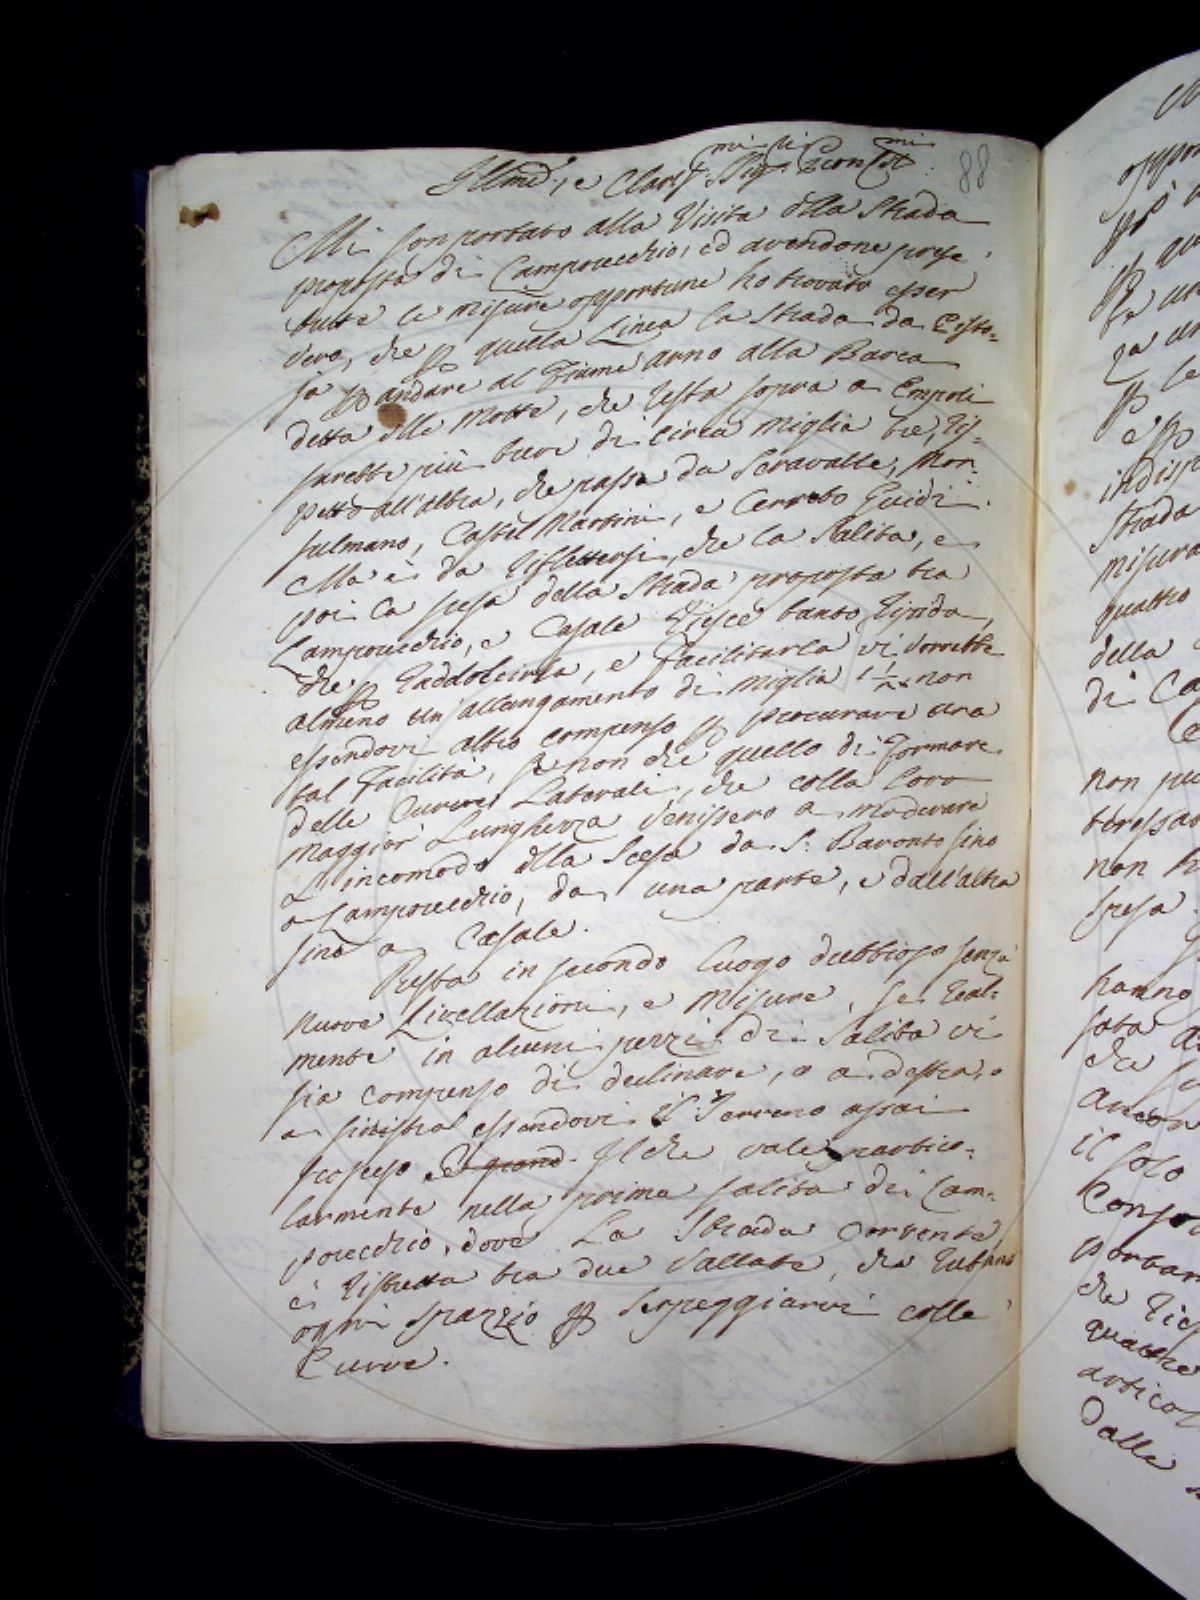 88
Illmi, e Clarissmi Sigri Pron Colmi
Mi son portato alla Visita della Strada
proposta di Lamporecchio, ed avendone prese
tutte le misure opportune ho trovato esser
vero, che p quella Linea la Strada da Pisto-
ja p andare al Fiume Arno alla Barca
detta delle Motte, che resta sopra a Empoli
sarebbe più breve di circa miglia tre, ris-
petto all'altra, che passa da Seravalle, Mon-
sulmano, Castel Martini, e Cerreto Guidi.
Ma è da riflettersi, che la Salita, e
poi la scesa della Strada proposta tra
Lamporecchio, e Casale riesce tanto ripida,
che p raddolcirla, e facilitarla vi vorrebbe
almeno un allungamento di miglia 1 1/2 non
essendovi altro compenso p procurare una
tal facilità, se non che quello di formare
delle Curve Laterali, che colla loro
maggior Lunghezza venissero a moderare
L'incomodo della Scesa da S. Baronto sino
a Lamporecchio, da una parte, e dall'altra
sino a Casale.
Resta in secondo luogo dubbioso senza
nuove Livellazioni, e Misure, se real-
mente in alcuni pezzi di Salita vi
sia compenso di declinare, o a destra, o
a sinistra essendovi il Terreno assai
scosceso. Il che vale partico-
larmente nella prima salita di Lam-
porecchio, dove La Strada corrente
è ristretta tra due Vallate, che rubano
ogni spazzio p serpeggiarvi colle
Curve.